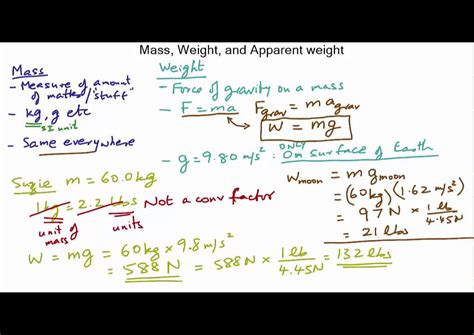 Mass, Weight, and Apparent weight
Mass
- Measure of amount
of matter/"stuff"
- kg, g etc
SI unit
- Same everywhere
Weight
- Force of gravity on a mass
- F = ma
F grav = m a grav
W = mg
- g = 9.80 m/s² : ONLY On surface of Earth
Suzie m = 60.0 kg
1kg = 2.2 lbs Not a conv factor
unit of mass
units
W = mg = 60kg × 9.8 m/s²
= 588 N = 588 N × 1 lb / 4.45N = 132 lbs
W moon = m g moon
= (60kg)(1.62 m/s²)
= 97 N × 1 lb / 4.45N
= 21 lbs